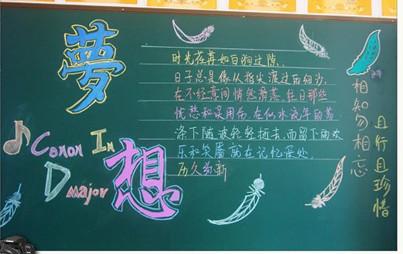 夢想
Canon In
D major
时光荏苒如白驹过隙,
日子总是像从指尖渡过的细沙,
在不经意间悄然滑落.往日那些
忧愁和误用伤,在似水流年的荡
涤下随波轻轻逝去,而留下的欢
乐和笑靥就在记忆深处.
历久弥新
相知勿相忘
且行且珍惜